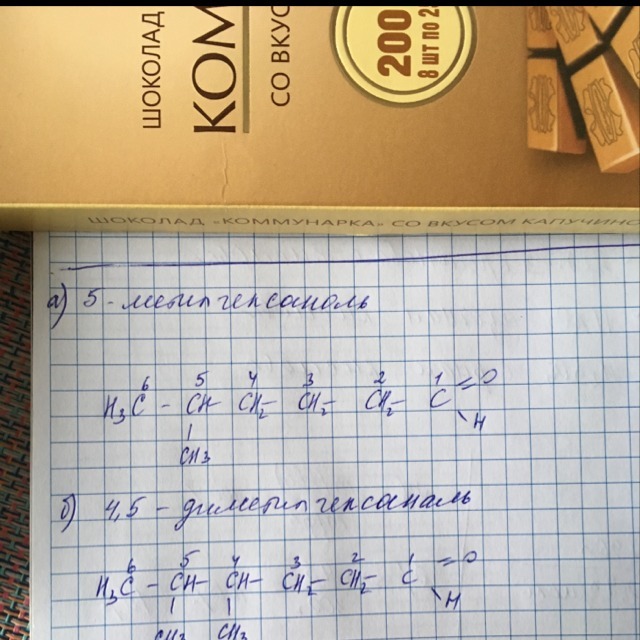 ШОКОЛАД
КОМ
СО ВКУС
200
8 ШТ ПО 2
ШОКОЛАД «КОММУНАРКА» СО ВКУСОМ КАПУЧИНО
а) 5-метилгексаналь
6 5 4 3 2 1
H₃C - CH - CH₂ - CH₂ - CH₂ - C = O
\ H
|
CH₃
б) 4,5 - диметилгексаналь
6 5 4 3 2 1
H₃C - CH - CH - CH₂ - CH₂ - C = O
| | \ H
CH₃ CH₃